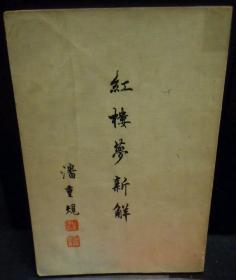 紅樓夢新解
潘重規